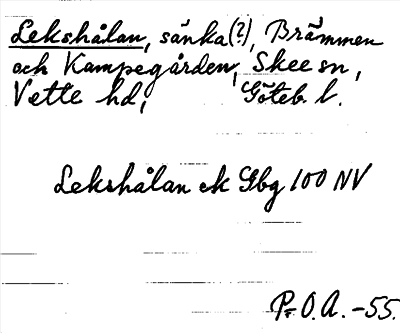 Lekshålan, sänka(?), Brämmen
och Kampegården, Skee sn,
Vette hd, Göteb. l.
Lekshålan ek Gbg 100 NV
P. O. A. -55.